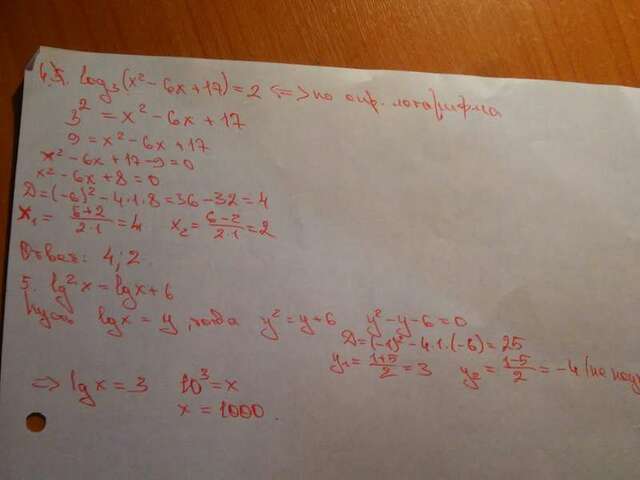 4.5. log₃(x² - 6x + 17) = 2 <=> по опр. логарифма
3² = x² - 6x + 17
9 = x² - 6x + 17
x² - 6x + 17 - 9 = 0
x² - 6x + 8 = 0
D = (-6)² - 4·1·8 = 36 - 32 = 4
x₁ = (6+2)/(2·1) = 4 x₂ = (6-2)/(2·1) = 2
Ответ: 4; 2.
5. lg² x = lg x + 6
Пусть lg x = y, тогда y² = y + 6 y² - y - 6 = 0
D = (-1)² - 4·1·(-6) = 25
y₁ = (1+5)/2 = 3 y₂ = (1-5)/2 = -4 (не
=> lg x = 3 10³ = x
x = 1000.